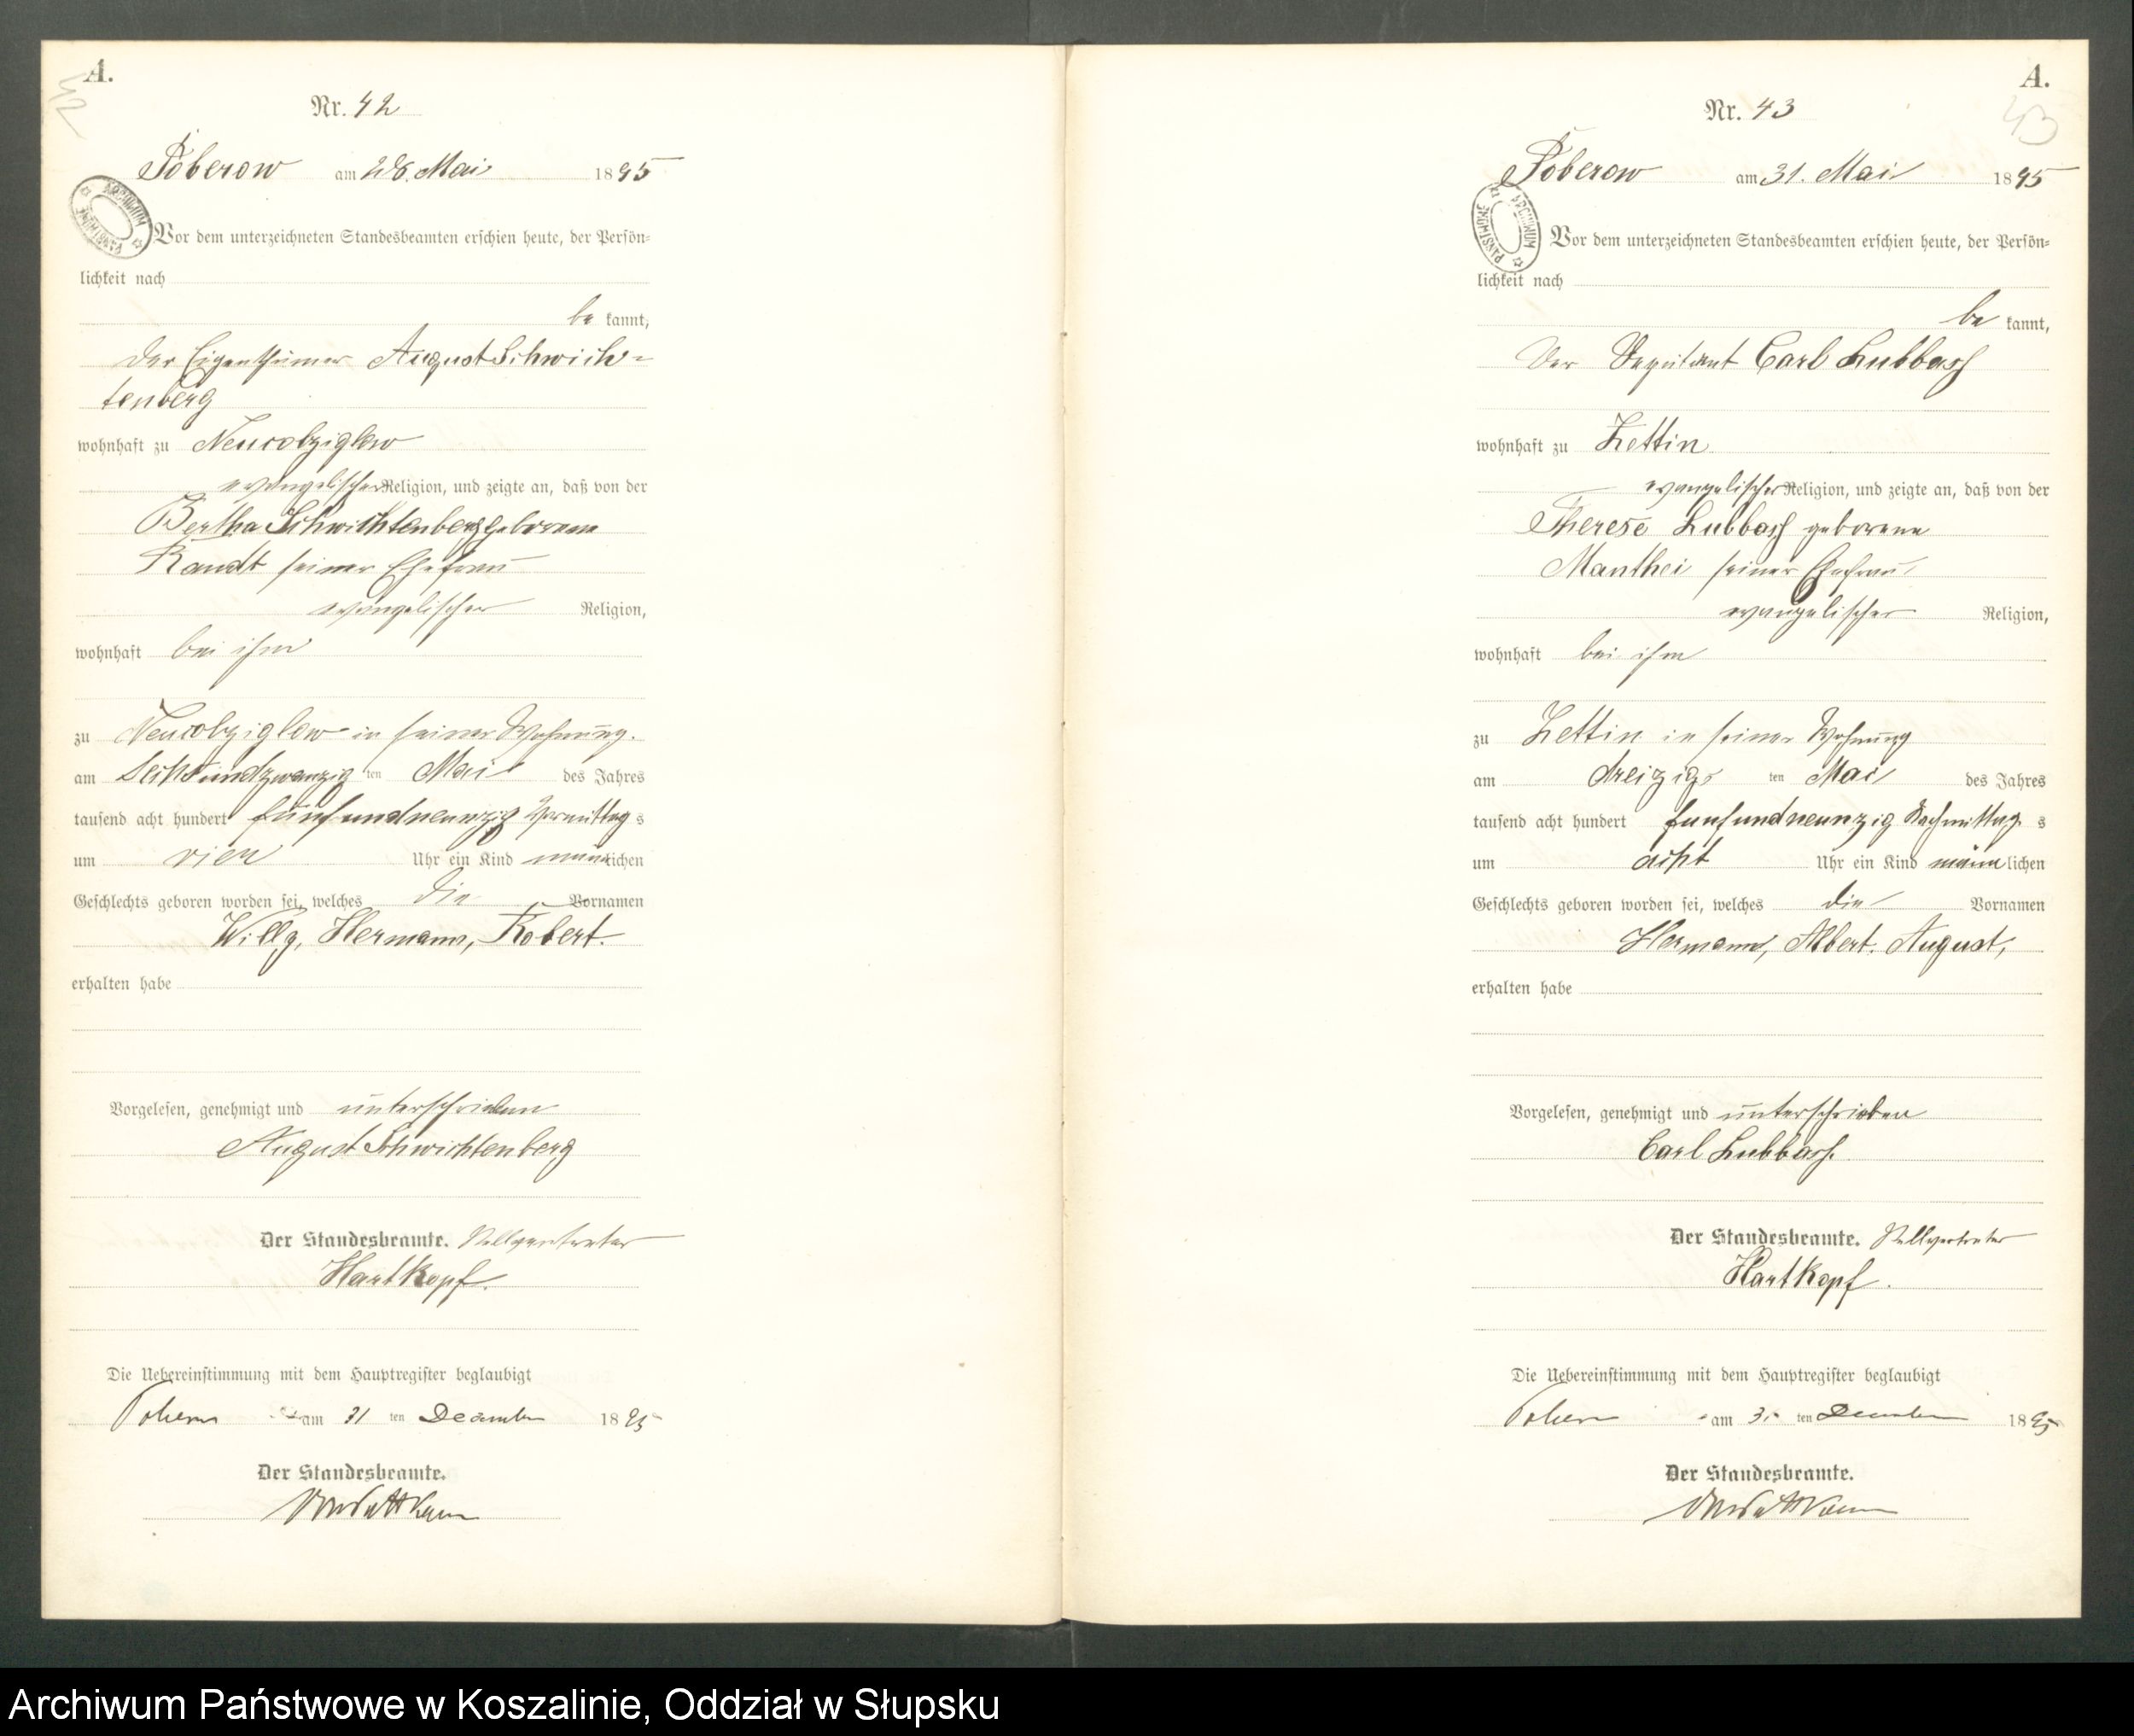 A.
42
Nr. 42
Poberow am 28. Mai 1895
ARCHIWUM PAŃSTWOWE
Vor dem unterzeichneten Standesbeamten erschien heute, der Persön-
lichkeit nach
be kannt,
der Eigenthümer August Schwich-
tenberg
wohnhaft zu Neucolziglow
evangelischer Religion, und zeigte an, daß von der
Bertha Schwichtenberg geborene
Kandt seiner Ehefrau
evangelischer Religion,
wohnhaft bei ihm
zu Neucolziglow in seiner Wohnung
am Sechsundzwanzig ten Mai des Jahres
tausend acht hundert fünfundneunzig Vormittag s
um vier Uhr ein Kind männlichen
Geschlechts geboren worden sei, welches die Vornamen
Willy, Hermann, Robert.
erhalten habe
Vorgelesen, genehmigt und unterschrieben
August Schwichtenberg
Der Standesbeamte. Stellvertreter
Hartkopf.
Die Uebereinstimmung mit dem Hauptregister beglaubigt
am 31 ten December 1895
Der Standesbeamte.
A.
43
Nr. 43
Poberow am 31. Mai 1895
ARCHIWUM PAŃSTWOWE
Vor dem unterzeichneten Standesbeamten erschien heute, der Persön-
lichkeit nach
be kannt,
Der Deputant Carl Lubbasch
wohnhaft zu Zettin
evangelischer Religion, und zeigte an, daß von der
Therese Lubbasch geborene
Manthei seiner Ehefrau
evangelischer Religion,
wohnhaft bei ihm
zu Zettin in seiner Wohnung
am dreizigs ten Mai des Jahres
tausend acht hundert funfundneunzig Nachmittag s
um acht Uhr ein Kind männlichen
Geschlechts geboren worden sei, welches die Vornamen
Hermann, Albert. August,
erhalten habe
Vorgelesen, genehmigt und unterschrieben
Carl Lubbasch.
Der Standesbeamte. Stellvertreter
Hartkopf.
Die Uebereinstimmung mit dem Hauptregister beglaubigt
am ten December 1895
Der Standesbeamte.
Archiwum Państwowe w Koszalinie, Oddział w Słupsku